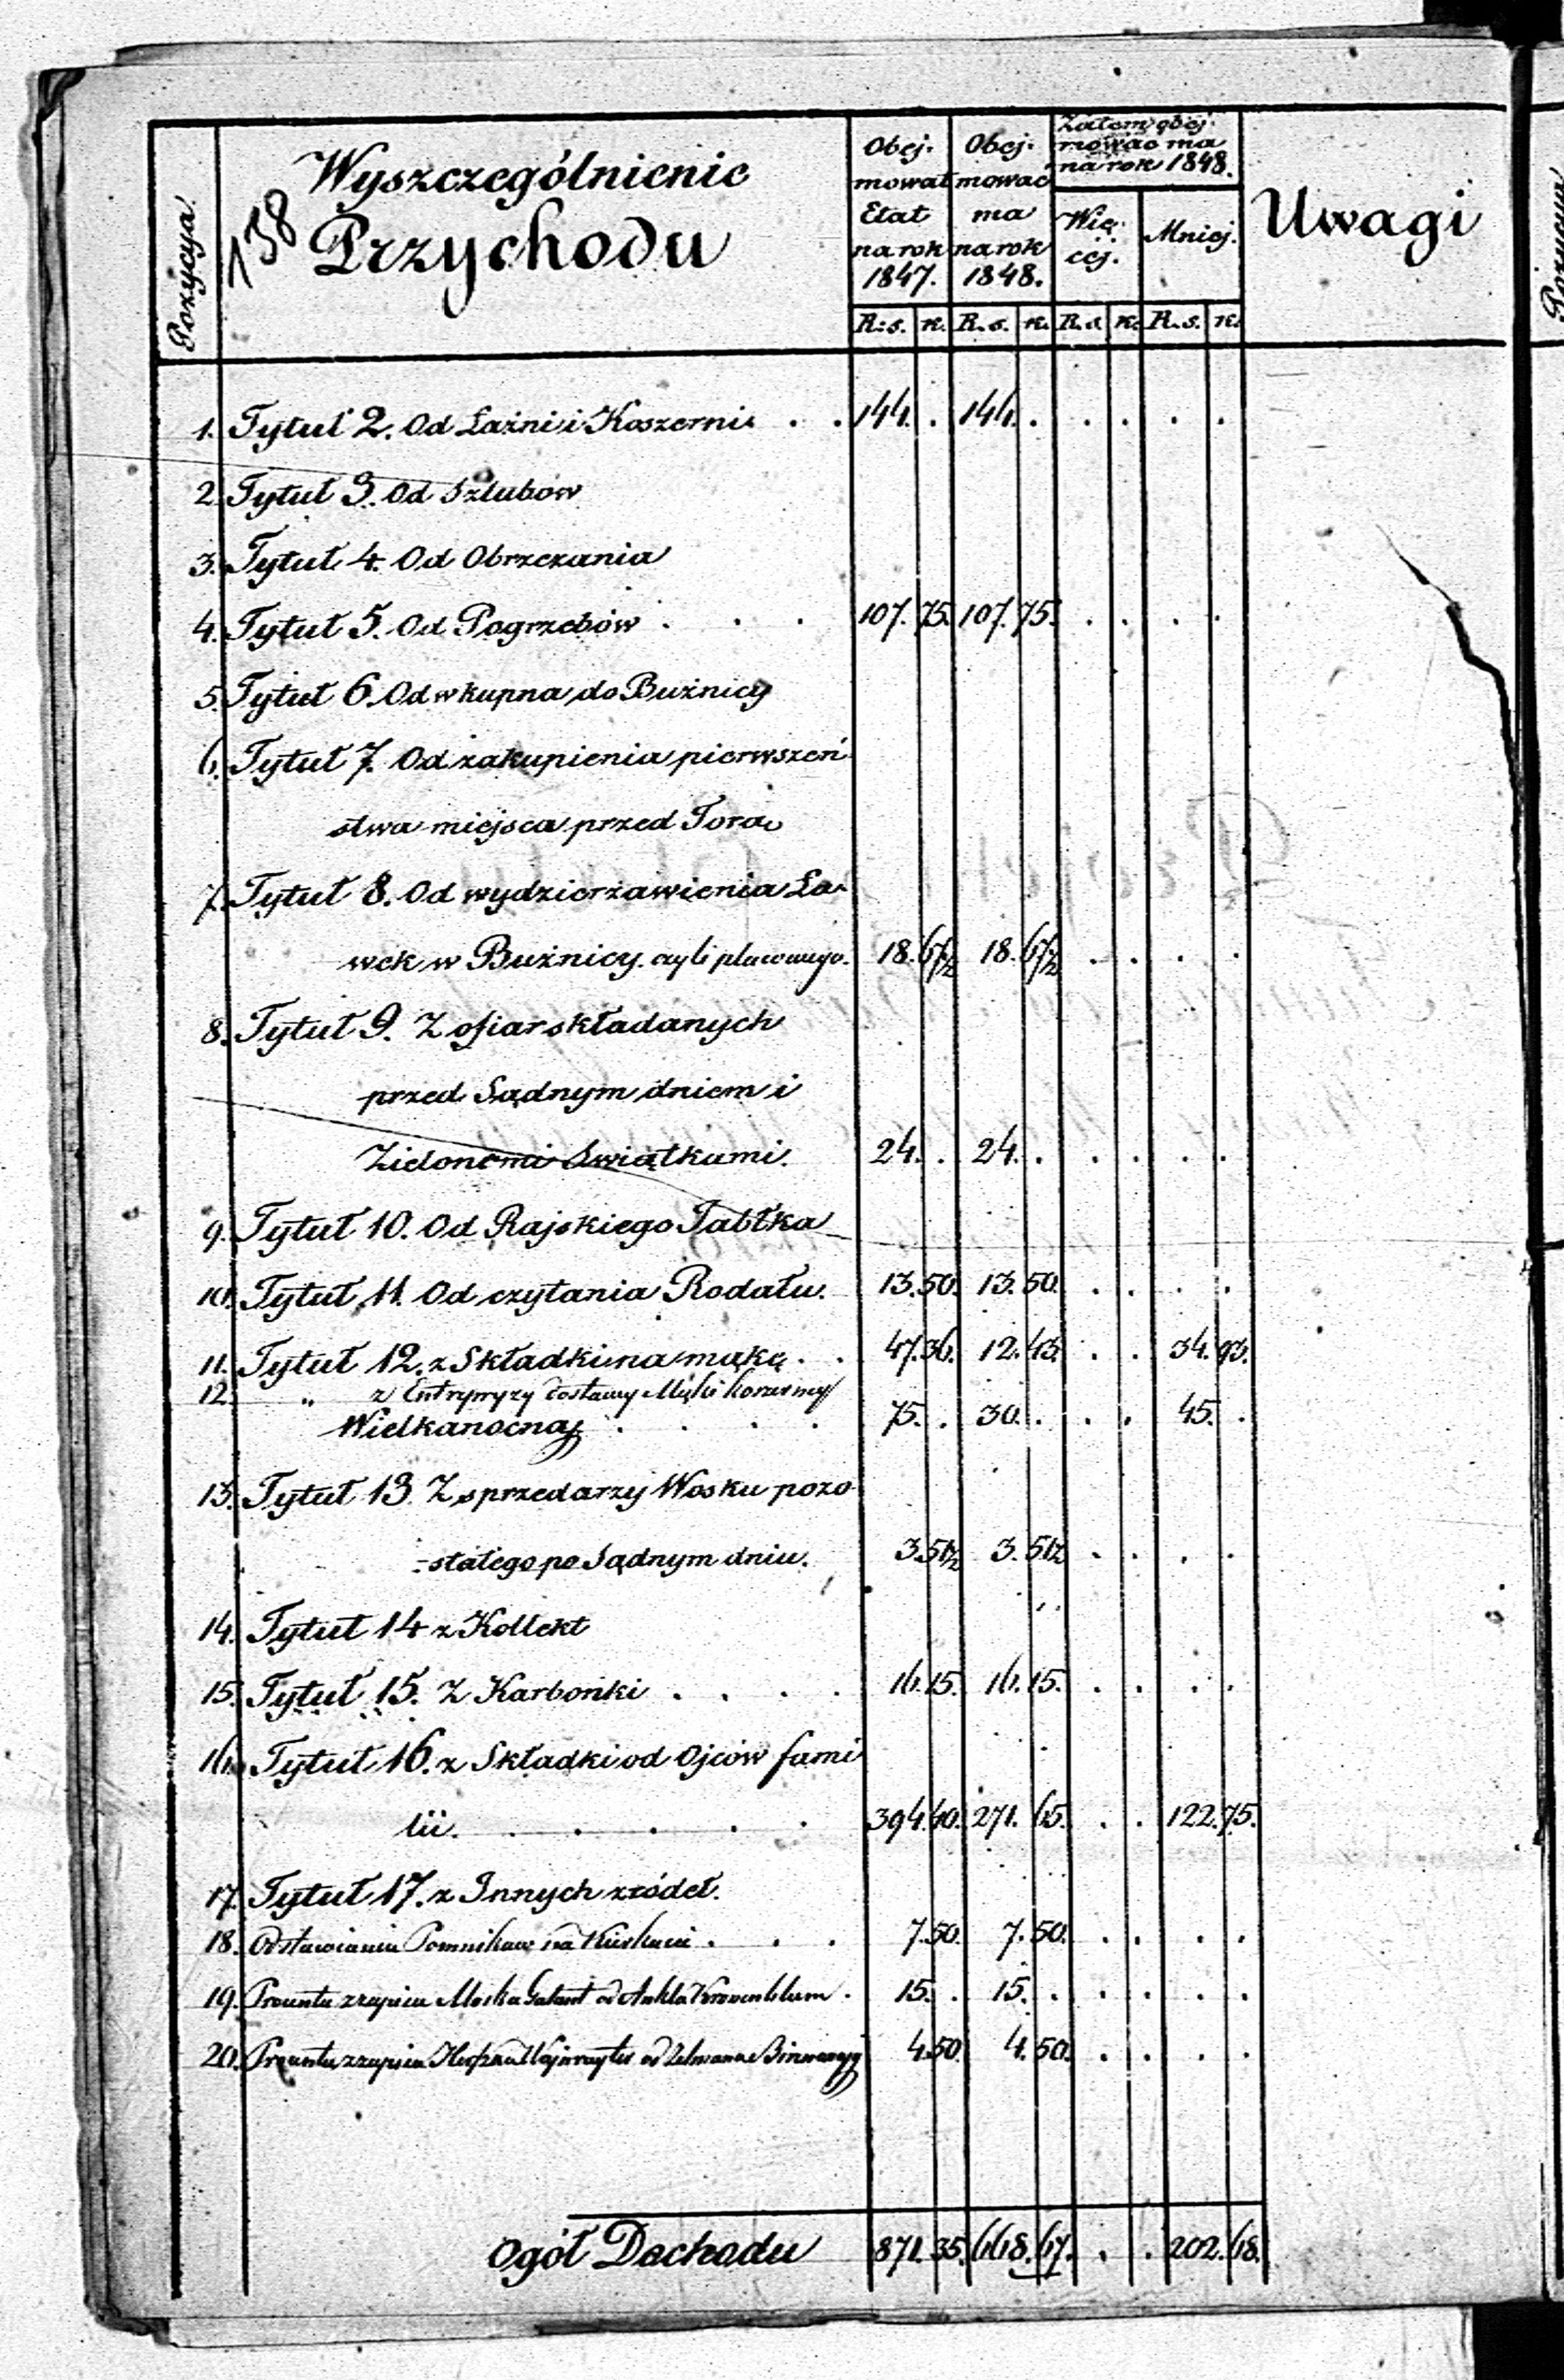 Pozycya
138
Wyszczególnienie
Przychodu
Obej-
mował
Etat
na rok
1847.
Obej-
mować
ma
na rok
1848.
Zatem obej-
mować ma
na rok 1848.
Wię-
cej.
Mniej.
Uwagi
R: s. k. R. s. k. R. s. k. R. s. k.
1. Tytuł 2. Od Łaźni i Koszerni . . 144. . 144. . . . . .
2. Tytuł 3. Od Szlubów
3. Tytuł 4. Od Obrzezania
4. Tytuł 5. Od Pogrzebów . . . 107. 75. 107. 75. . . . .
5. Tytuł 6. Od wkupna do Bużnicy
6. Tytuł 7. Od zakupienia pierwszeń
stwa miejsca przed Torą
7. Tytuł 8. Od wydzierzawienia Ła-
wek w Bużnicy czyli placowego. 18. 67½ 18. 67½ . . . .
8. Tytuł 9. Z ofiar składanych
przed Sądnym dniem i
Zielonemi Swiątkami. 24. . 24. . . . . .
9. Tytuł 10. Od Rajskiego Jabłka
10. Tytuł 11. Od czytania Rodału. 13. 50. 13. 50. . . . .
11. Tytuł 12. z Składki na mąkę . . 47. 36. 12. 43. . . 34. 93.
12. " z Entrepryzy dostawy Mąki koszernej
Wielkanocnej . . . . 75. . 30. . . . 45. .
13. Tytuł 13. Z sprzedarzy Wosku pozo
-stałego po Sądnym dniu. 3. 51½ 3. 51½ . . . .
14. Tytuł 14 z Kollekt
15. Tytuł 15. Z Karbonki . . . . 16. 15. 16. 15. . . . .
16. Tytuł 16. z Składki od Ojców fami
lii. . . . . . 394. 40. 271. 65. . . 122. 75.
17. Tytuł 17. z Innych zródeł.
18. Od stawiania Pomników na Kirkucie . . . 7. 50. 7. 50. . . . .
19. Procentu z zapisu Moska Galant od Ankla Kronenblum . 15. . 15. . . . . .
20. Procentu z zapisu od Zelmana 4. 50. 4. 50. . . . .
Ogół Dochodu 871. 35. 668. 67. . . 202. 68.
Pozycya